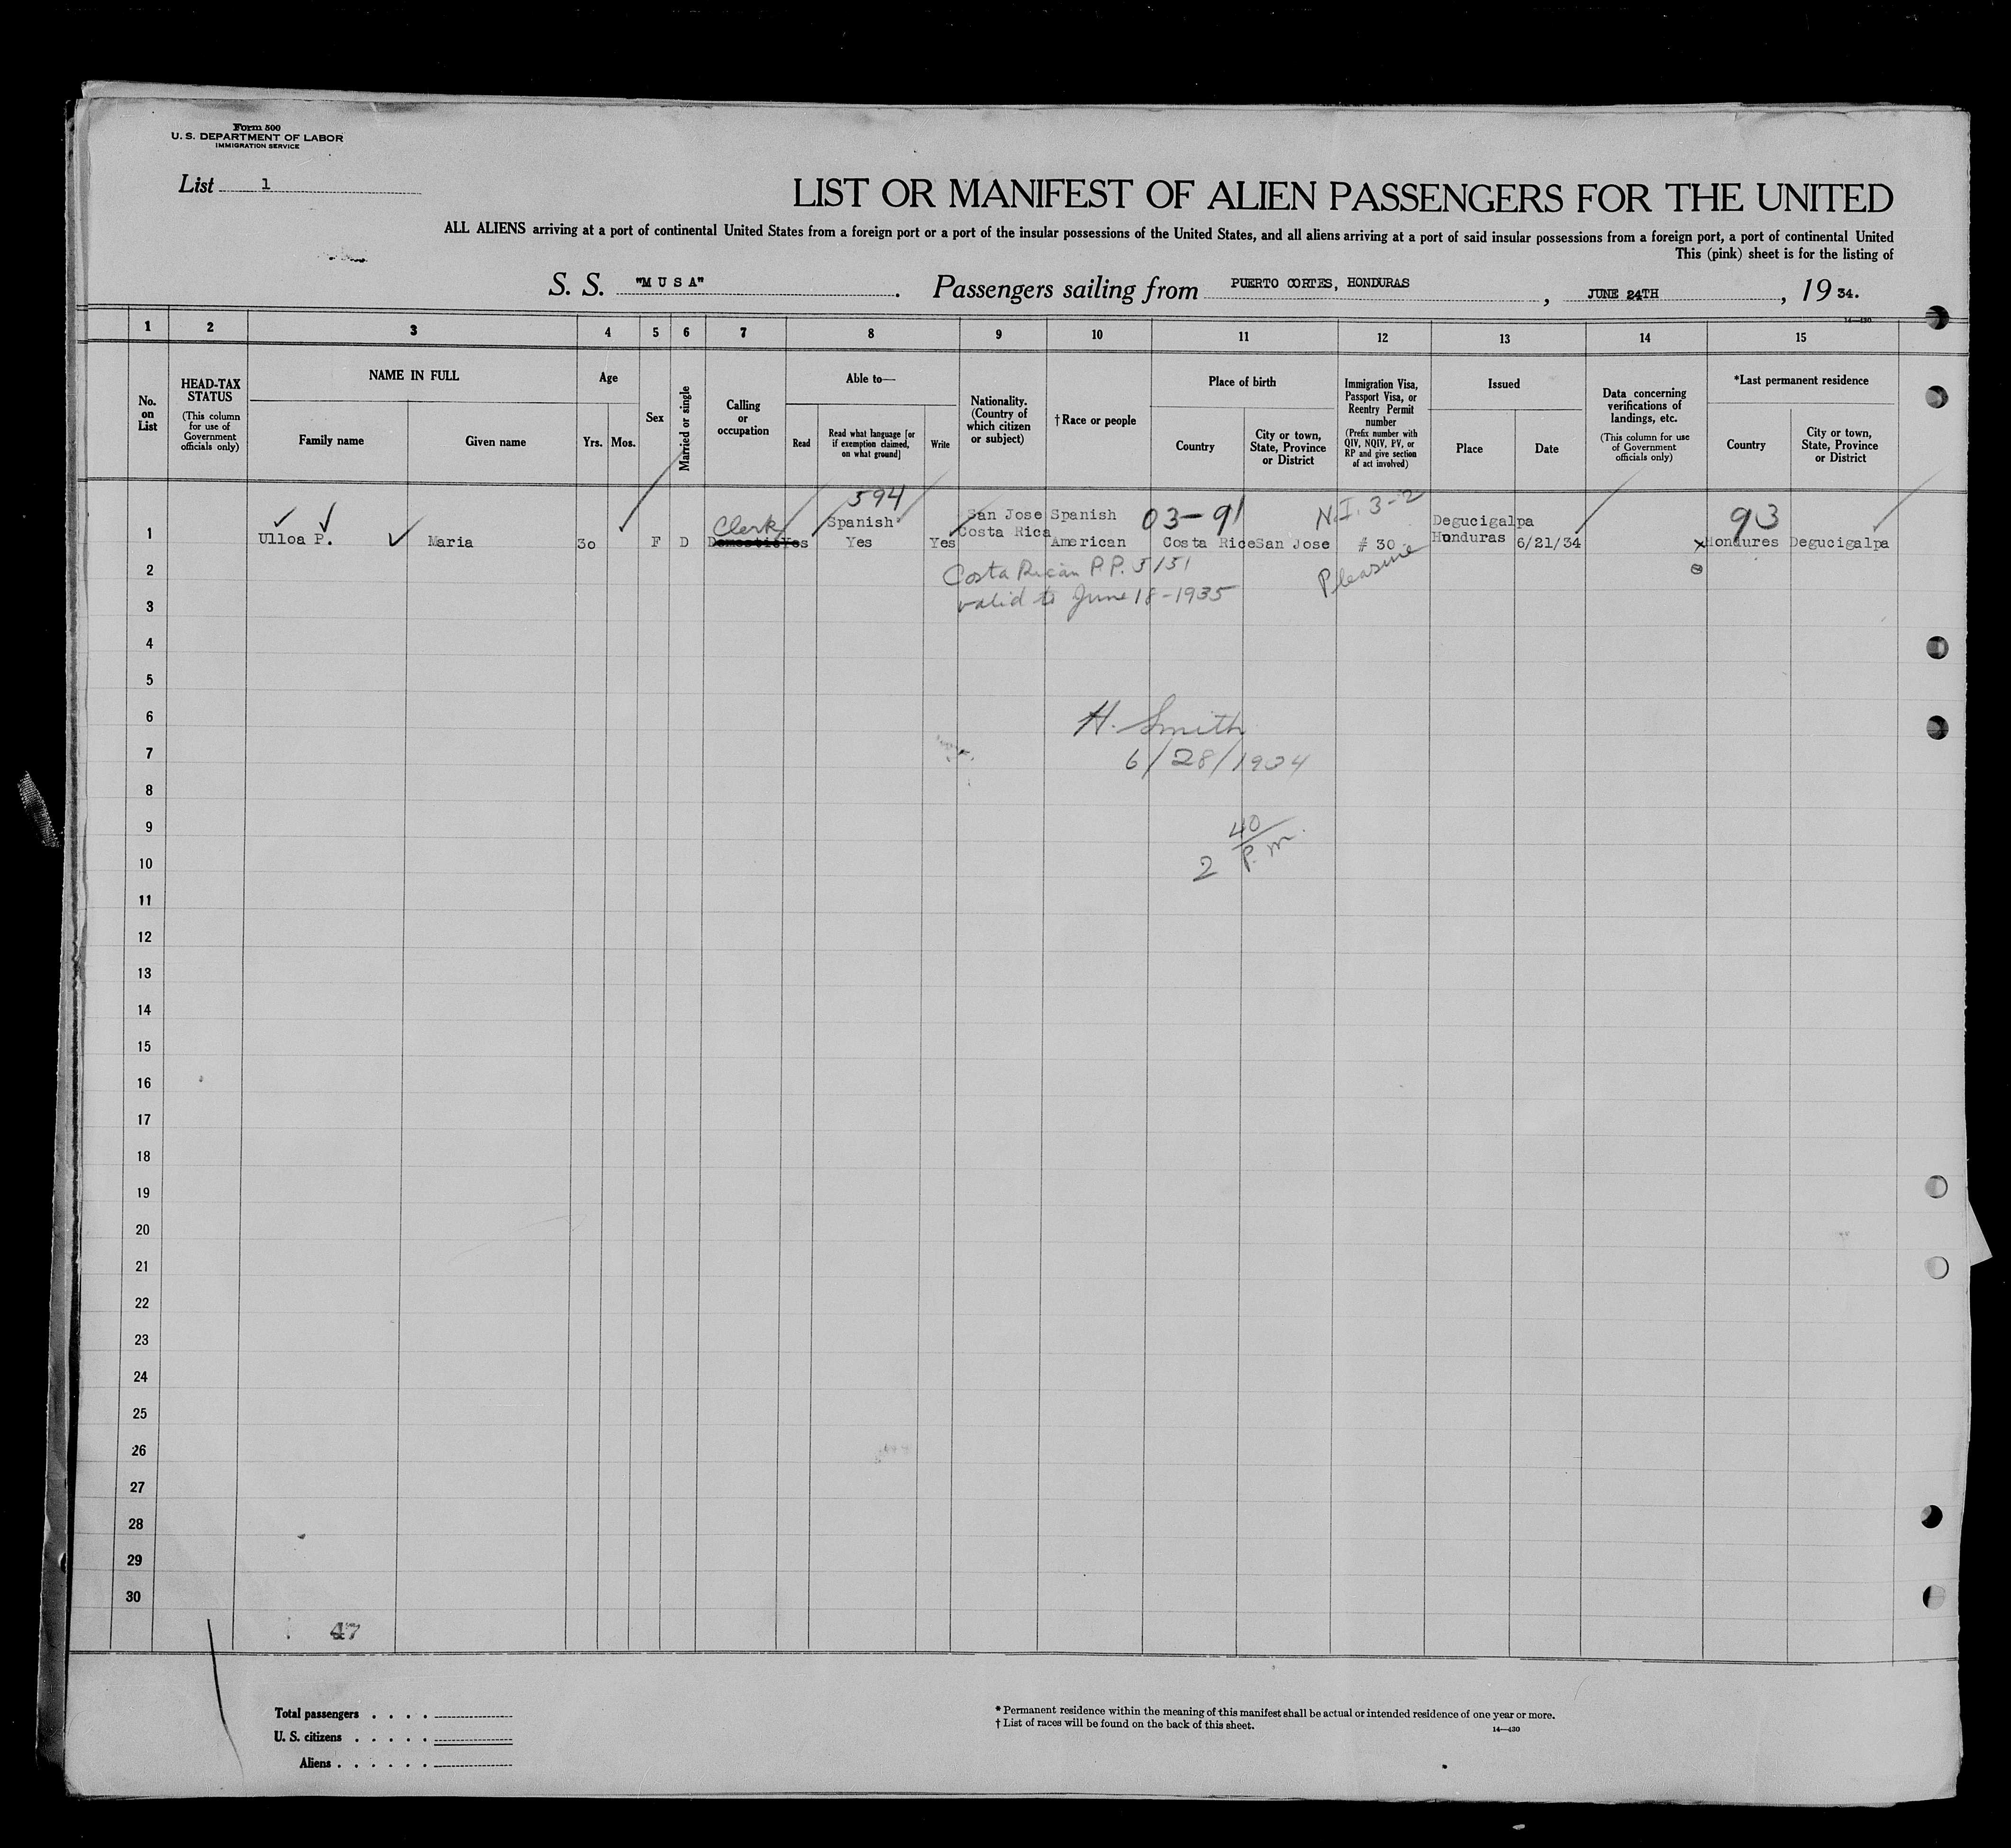 Form 500
U. S. DEPARTMENT OF LABOR
IMMIGRATION SERVICE
List 1
LIST OR MANIFEST OF ALIEN PASSENGERS FOR THE UNITED
ALL ALIENS arriving at a port of continental United States from a foreign port or a port of the insular possessions of the United States, and all aliens arriving at a port of said insular possessions from a foreign port, a port of continental United
This (pink) sheet is for the listing of
S. S. "M U S A". Passengers sailing from PUERTO CORTES, HONDURAS, JUNE 24TH, 19 34.
14—430
1 2 3 4 5 6 7 8 9 10 11 12 13 14 15
No. on List
HEAD-TAX STATUS (This column for use of Government officials only)
NAME IN FULL
Family name
Given name
Age
Yrs. Mos.
Sex
Married or single
Calling or occupation
Able to—
Read
Read what language [or if exemption claimed, on what ground]
Write
Nationality. (Country of which citizen or subject)
†Race or people
Place of birth
Country
City or town, State, Province or District
Immigration Visa, Passport Visa, or Reentry Permit number (Prefix number with QIV, NQIV, PV, or RP and give section of act involved)
Issued
Place
Date
Data concerning verifications of landings, etc. (This column for use of Government officials only)
*Last permanent residence
Country
City or town, State, Province or District
594 03-91 N.I. 3-2 93
Clerk Spanish San Jose Spanish Degucigalpa
1 Ulloa P. Maria 30 F D Domestic Yes Yes Yes Costa Rica American Costa Rice San Jose # 30 Honduras 6/21/34 x Hondures Degucigalpa
2 Costa Rican P.P. 5151 Pleasure
3 valid to June 18-1935
4
5
6 H. Smith
7 6/28/1934
8
9 40
10 2 P.m.
11
12
13
14
15
16
17
18
19
20
21
22
23
24
25
26
27
28
29
30
47
Total passengers
U. S. citizens
Aliens
* Permanent residence within the meaning of this manifest shall be actual or intended residence of one year or more.
† List of races will be found on the back of this sheet.
14—430